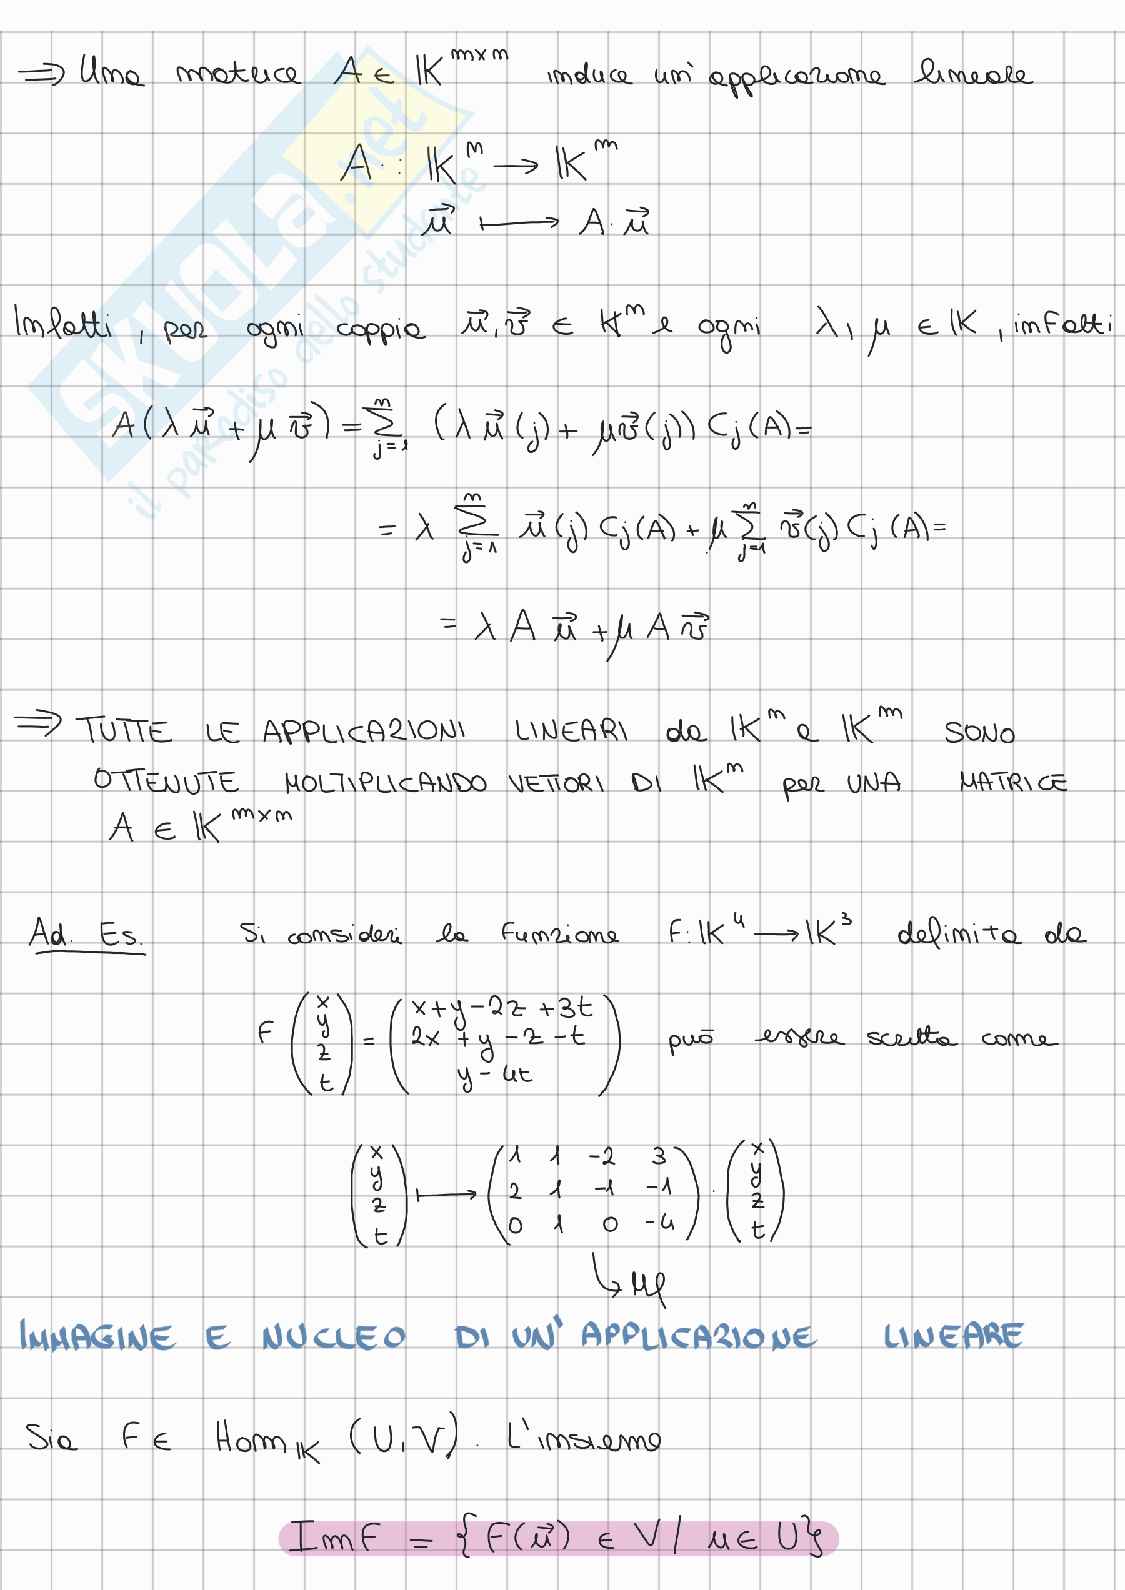 ⇒ Una matrice A ∈ 𝕂^{m×n} induce un'applicazione lineare
A· : 𝕂^n → 𝕂^m
u⃗ ⟼ A·u⃗
Infatti, per ogni coppia u⃗, v⃗ ∈ 𝕂^n e ogni λ, μ ∈ 𝕂, infatti
A(λu⃗ + μv⃗) = ∑_{j=1}^{n} (λu⃗(j) + μv⃗(j)) C_j(A) =
= λ ∑_{j=1}^{n} u⃗(j) C_j(A) + μ ∑_{j=1}^{n} v⃗(j) C_j(A) =
= λ A u⃗ + μ A v⃗
⇒ TUTTE LE APPLICAZIONI LINEARI da 𝕂^n a 𝕂^m SONO
OTTENUTE MOLTIPLICANDO VETTORI DI 𝕂^n per UNA MATRICE
A ∈ 𝕂^{m×n}
Ad. Es. Si consideri la funzione F: 𝕂^4 → 𝕂^3 definita da
F (x y z t) = (x+y-2z+3t 2x+y-z-t y-4t) può essere scritta come
(x y z t) ⟼ (1 1 -2 3 2 1 -1 -1 0 1 0 -4) · (x y z t)
↳ Mf
IMMAGINE E NUCLEO DI UN'APPLICAZIONE LINEARE
Sia F ∈ Hom_𝕂 (U,V). L'insieme
Im F = {F(u⃗) ∈ V / u ∈ U}
SKUOLA.net
il paradiso dello studente